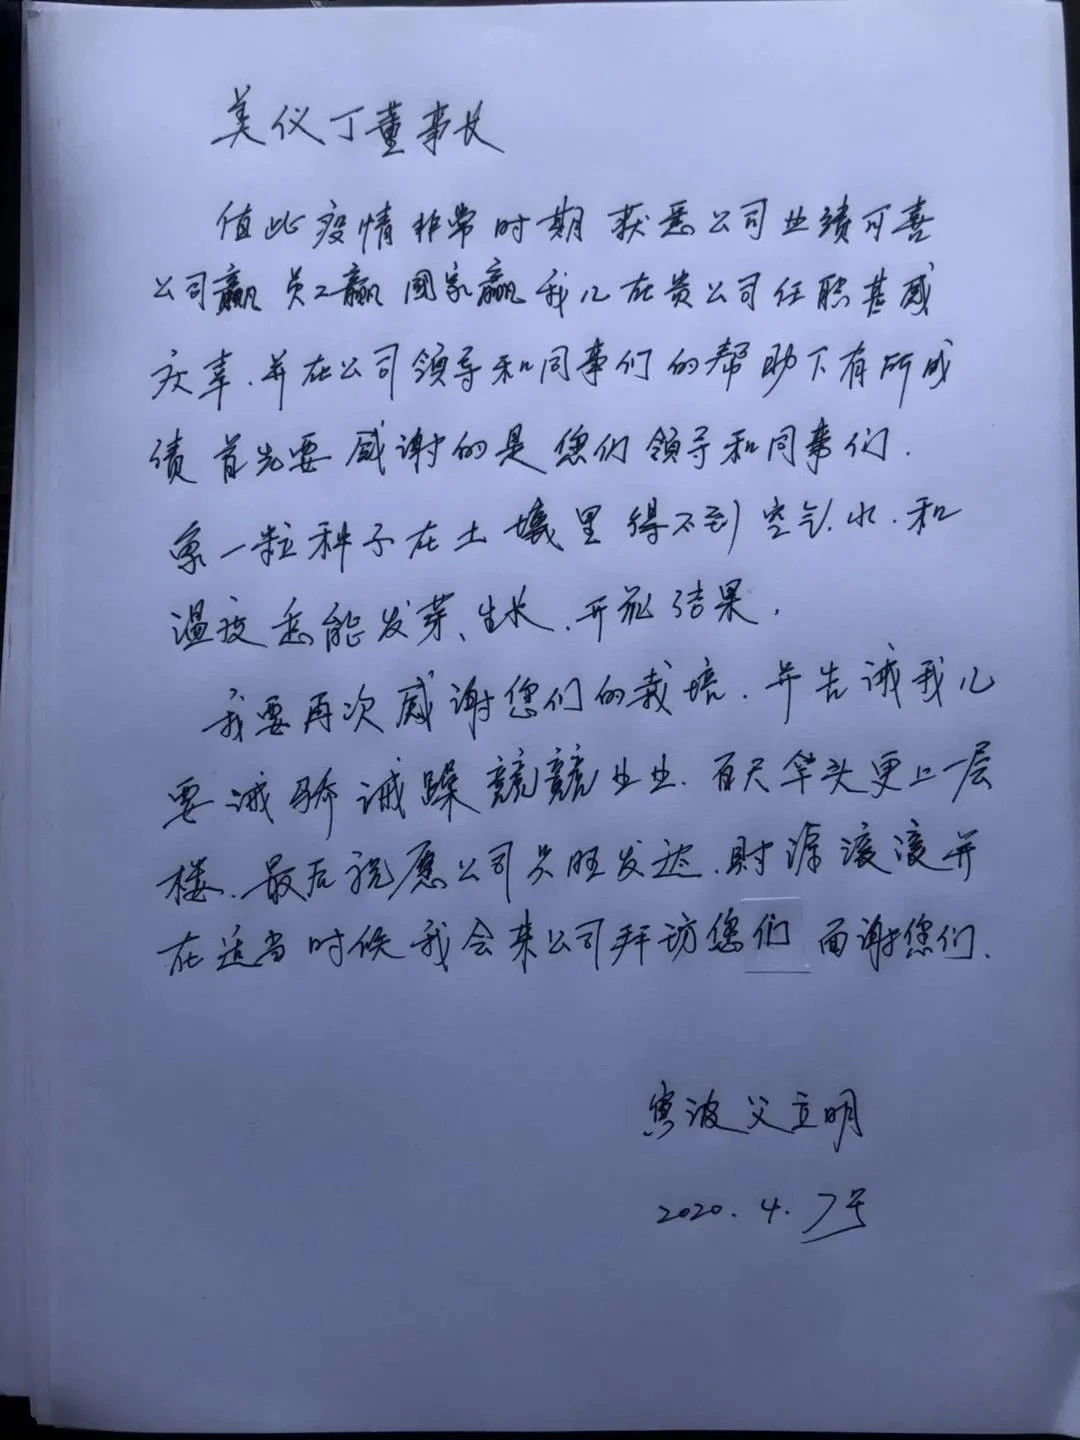 美仪丁董事长
值此疫情非常时期获悉公司业绩可喜
公司赢员工赢國家赢我儿在贵公司任职甚感
庆幸.并在公司领导和同事们的帮助下有所成
绩首先要感谢的是您们领导和同事们.
象一粒种子在土壤里得不到空气.水.和
温度怎能发芽、生长.开花结果.
我要再次感谢您们的栽培.并告诫我儿
要诫骄诫躁兢兢业业.百尺竿头更上一层
楼.最后祝愿公司兴旺发达.財源滚滚并
在适当时候我会来公司拜访您们面谢您们.
波父立明
2020.4.7号